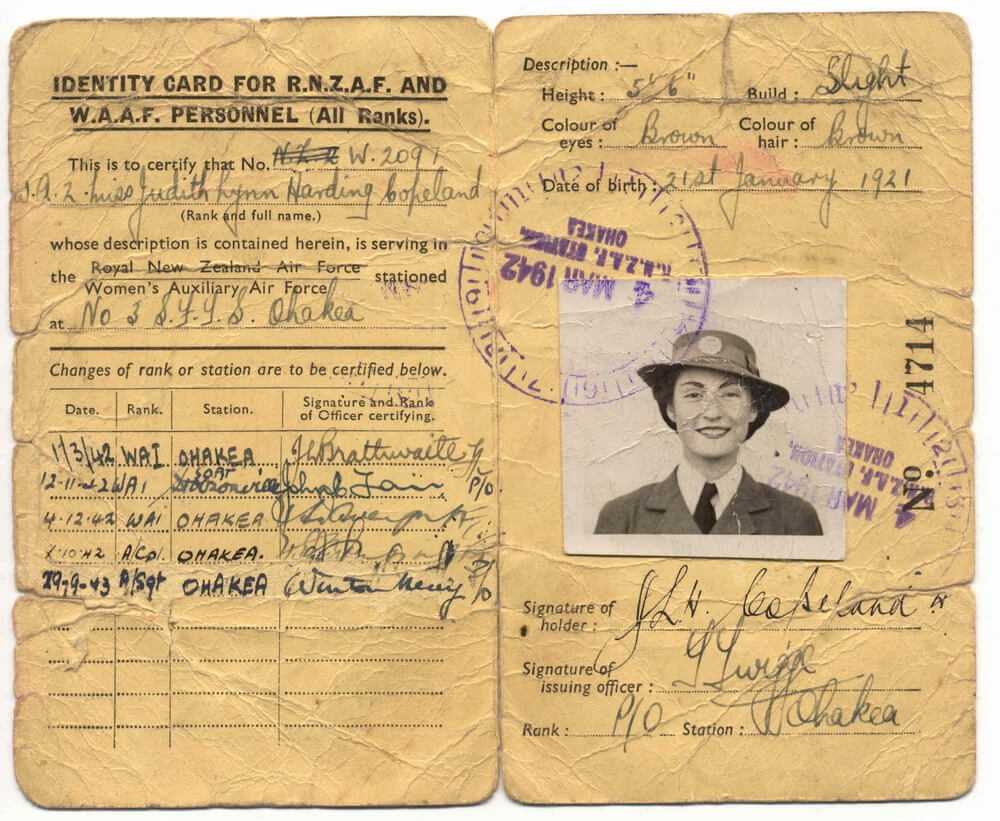 IDENTITY CARD FOR R.N.Z.A.F. AND
W.A.A.F. PERSONNEL (All Ranks).
This is to certify that No. N.Z. W. 2091
Miss Judith Lynn Harding Copeland
(Rank and full name.)
whose description is contained herein, is serving in
the Royal New Zealand Air Force stationed
Women's Auxiliary Air Force
at No 3 S.F.T.S. Ohakea
Changes of rank or station are to be certified below.
Date. Rank. Station. Signature and Rank
of Officer certifying.
1/3/42 WAI OHAKEA
12-11-42 WAI P/O
4.12.42 WAI OHAKEA
10.42 A/Cpl. OHAKEA.
29-9-43 A/Sgt OHAKEA
Description :—
Height : 5' 6" Build : Slight
Colour of eyes : Brown Colour of hair : Brown
Date of birth : 21st January 1921
R.N.Z.A.F. STATION,
OHAKEA
4 MAR 1942
No. 4714
R.N.Z.A.F. STATION,
OHAKEA
4 MAR 1942
Signature of
holder : J L H. Copeland
Signature of
issuing officer :
Rank : P/O Station : Ohakea